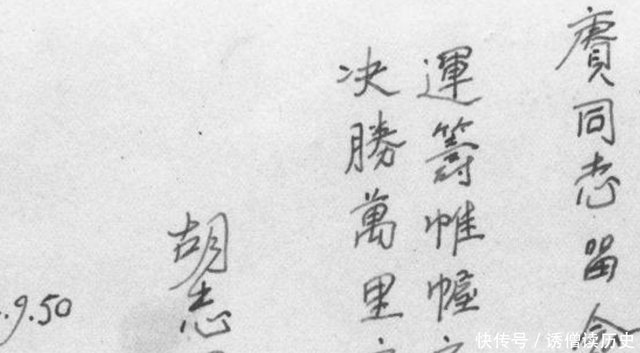 賡同志留
運籌帷幄
决勝萬里
胡志
.9.50
快传号 / 诱僧读历史